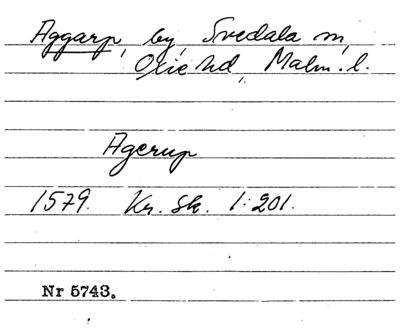 Aggarp, by, Svedala sn,
Oxie hd, Malm. l.
Agerup
1579. Kr. Sk. 1:201.
Nr 5743.